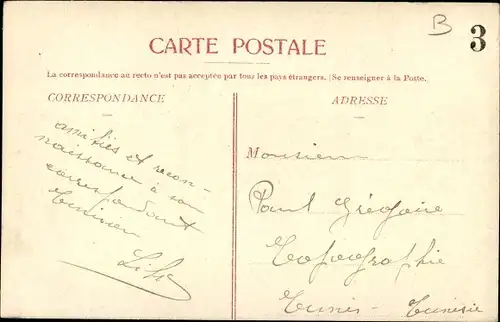 B
3
CARTE POSTALE
La correspondance au recto n'est pas acceptée par tous les pays étrangers. (Se renseigner à la Poste.
CORRESPONDANCE
ADRESSE
amitiés et recon-
naissance à son
correspondant
Tunisien
Monsieur
Paul Grégoire
Topographie
Tunis - Tunisie